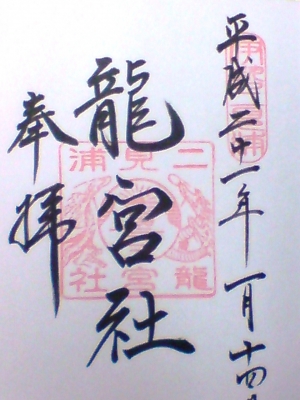 平成二十一年一月十四日
龍宮社
奉拝
二見浦
龍宮社